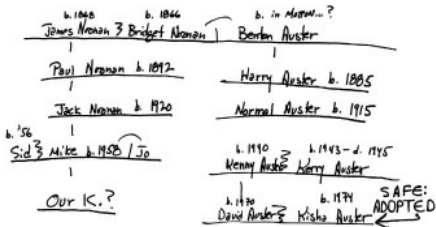 b. 1868 b. 1866 b. in Morrow...?
James Noonan } Bridget Noonan Benton Auster
Paul Noonan b. 1892 Harry Auster b. 1885
Jack Noonan b. 1920 Normal Auster b. 1915
b. '56
Sid } Mike b. 1958 / Jo
b. 1940 b. 1943-d. 1945
Kenny Auster } Kerry Auster
Our K.?
b. 1970 b. 1974
David Auster } Kisha Auster
SAFE:
ADOPTED